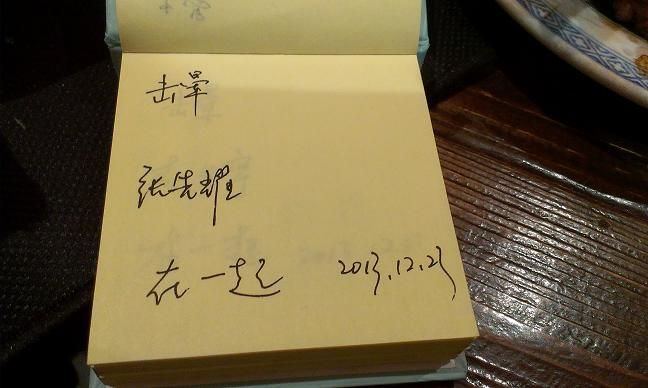 击晕
张先耀
在一起 2013.12.23